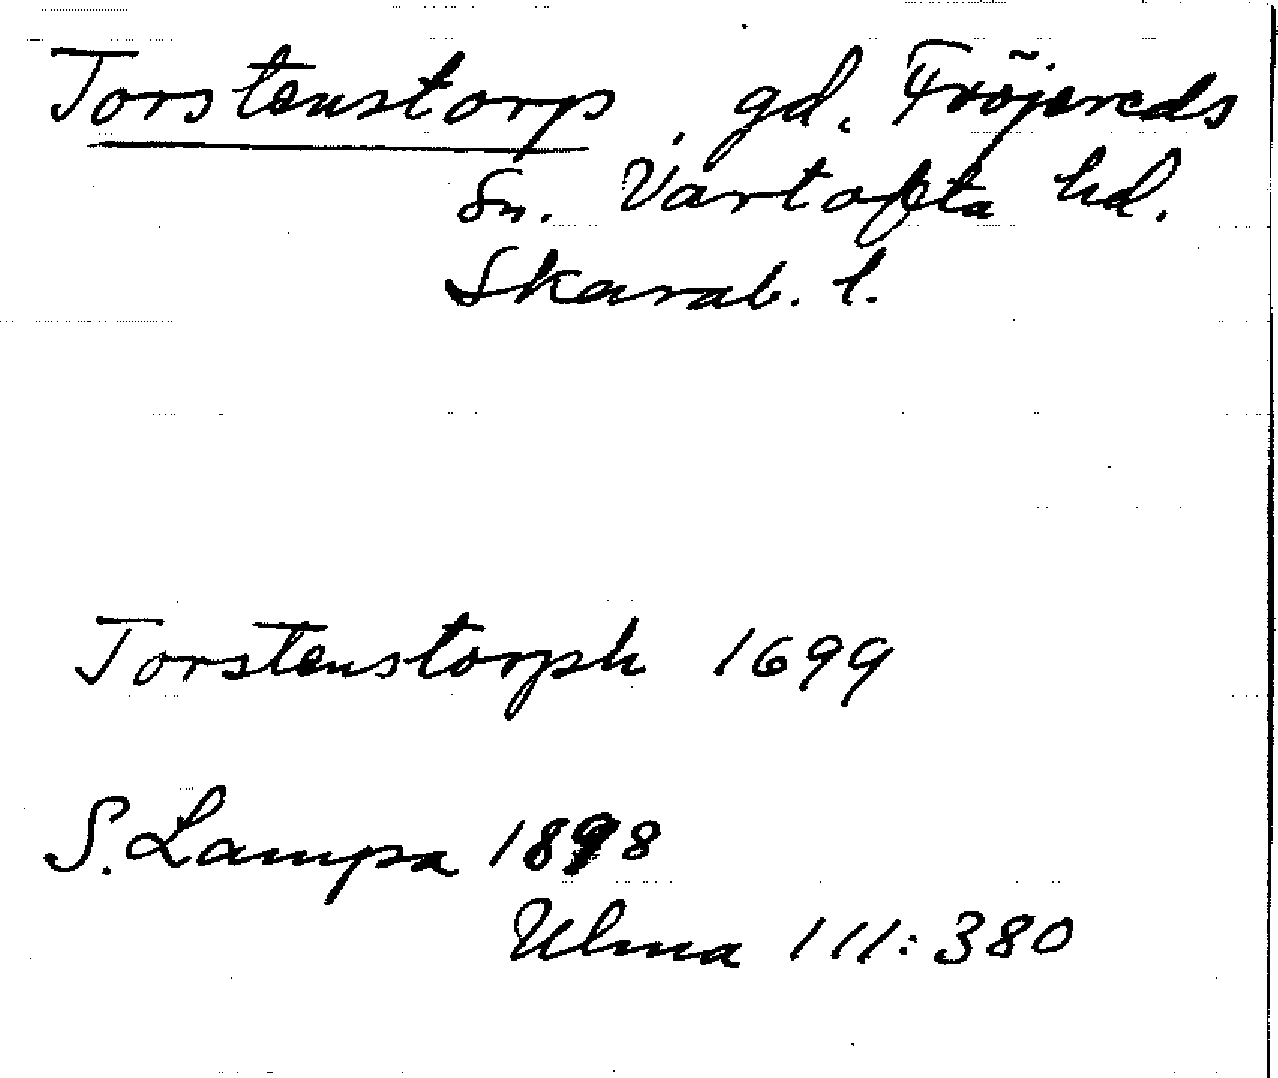 Torstenstorp, gd. Fröjereds
Sn. Vartofta hd.
Skarab. l.
Torstenstorph 1699
S. Lampa 1898
Ulma 111:380